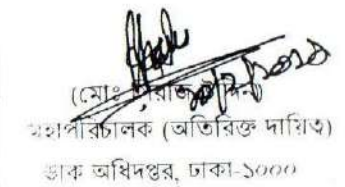 (মোঃ সিরাজ উদ্দিন)
মহাপরিচালক (অতিরিক্ত দায়িত্ব)
ডাক অধিদপ্তর, ঢাকা-১০০০